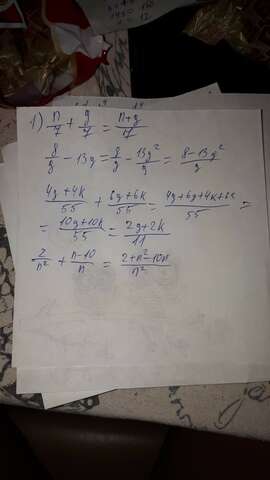 1) n/7 + g/7 = n+g/7
8/g - 13g = 8/g - 13g²/g = 8-13g²/g
4g+4k/55 + 6g+6k/55 = 4g+6g+4k+6k/55 =
= 10g+10k/55 = 2g+2k/11
2/n² + n-10/n = 2+n²-10n/n²